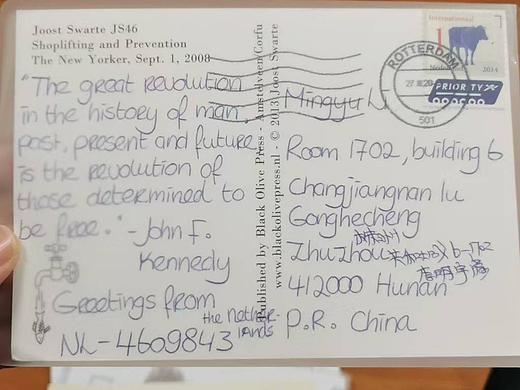 Joost Swarte JS46
Shoplifting and Prevention
The New Yorker, Sept. 1, 2008
"The great revolution
in the history of man,
past, present and future
is the revolution of
those determined to
be free." - John F.
Kennedy
Greetings from
the Nether-
lands
NL-4609843
Published by Black Olive Press - Amstelveen/Corfu
www.blackolivepress.nl - © 2013 Joost Swarte
International
1
2014
ROTTERDAM
501
PRIORITY
Mingyu
Room 1702, building 6
Changjiangnan lu
Gonghecheng
Zhuzhou
株洲
6-1702
412000 Hunan
P.R. China